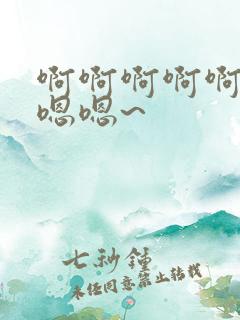 啊啊啊啊啊
嗯嗯~
七秒钟
未经同意禁止转载